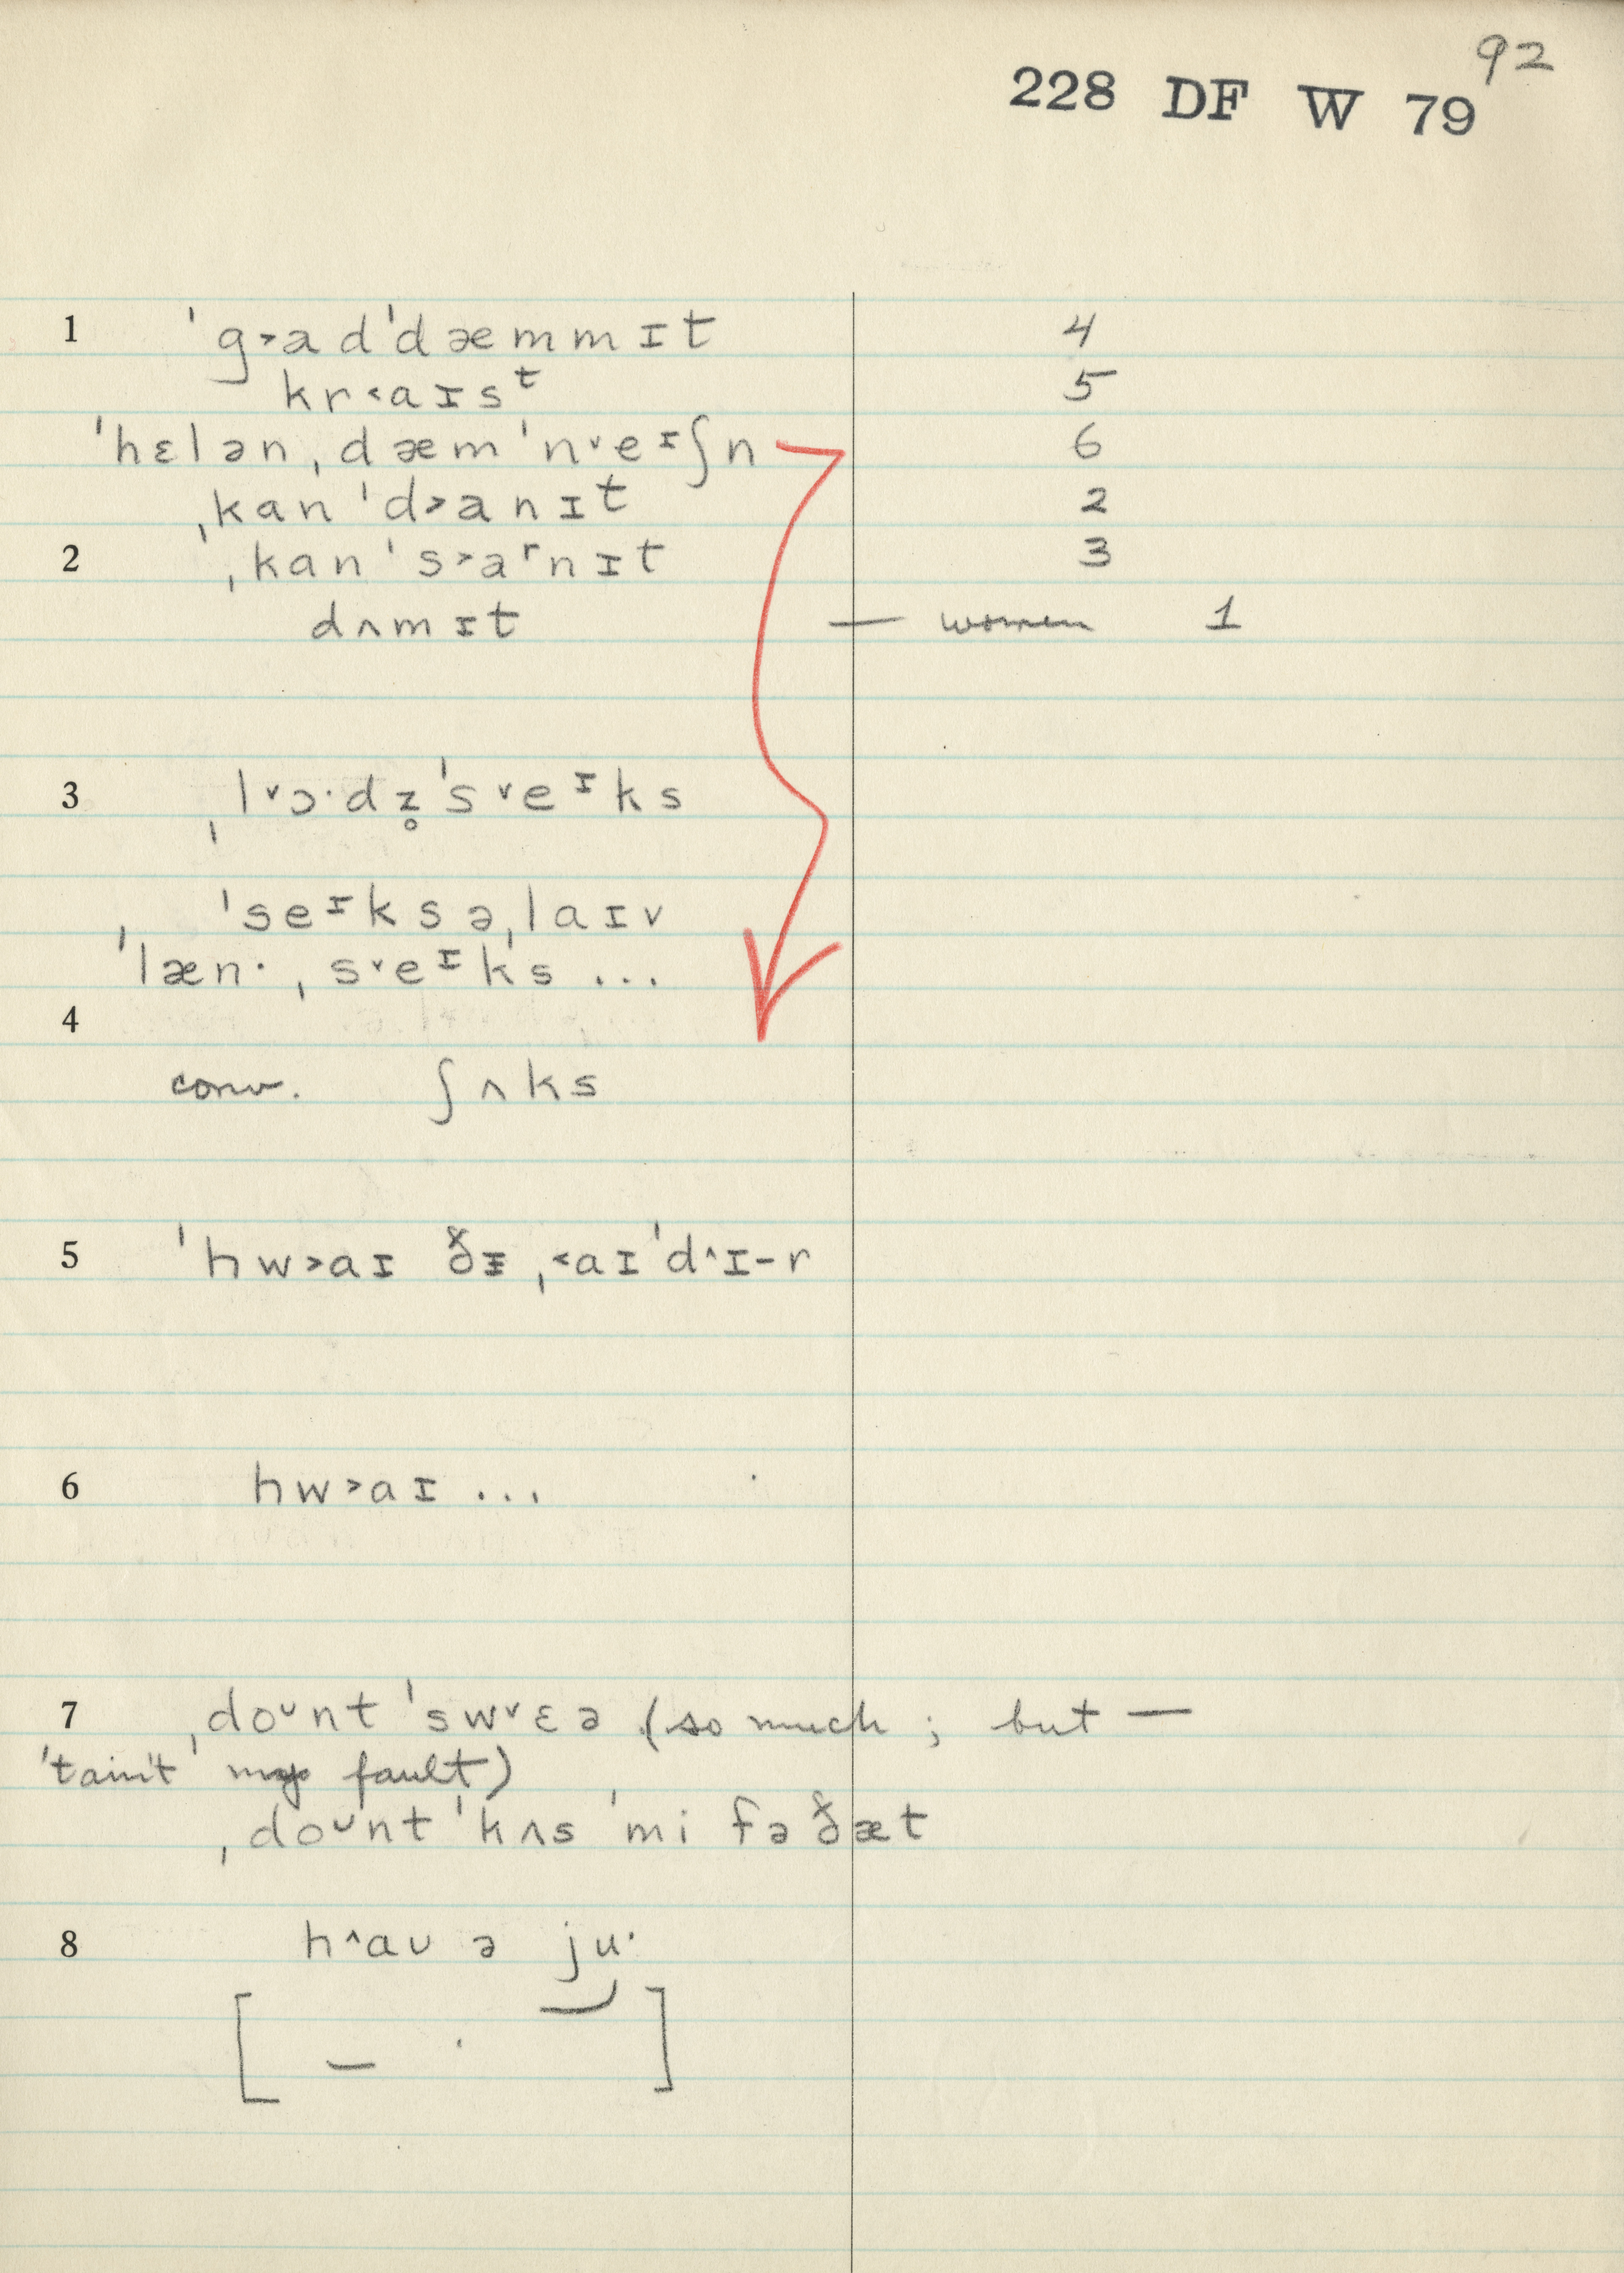 92
228 DF W 79
1 ˈg˃ɑdˈdæmmɪt 4
kr˂aɪsᵗ 5
ˈhɛlənˌdæmˈn˅eᶦʃn 6
ˌkɑnˈd˃ɑnɪt 2
2 ˌkɑnˈs˃ɑʳnɪt 3
dʌmɪt — women 1
3 ˌl˅ɔ·dz̥ˈs˅eᶦks
ˈseᶦksəˌlaɪv
ˈlæn·ˌs˅eᶦks ...
4
conv. ʃʌks
5 ˈhw˃aɪ ðɪ ˌ˂aɪˈd˄ɪ-r
6 hw˃aɪ ...
7 ˌdoᶷnt ˈsw˅ɛə (so much ; but —
'tain't my fault)
ˌdoᶷnt ˈkʌs ˈmi fəðæt
8 h˄aʊ ə ju·
[ — · ]